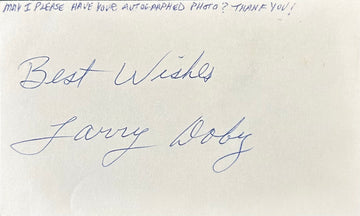 MAY I PLEASE HAVE YOUR AUTOGRAPHED PHOTO? THANK YOU!
Best Wishes
Larry Doby